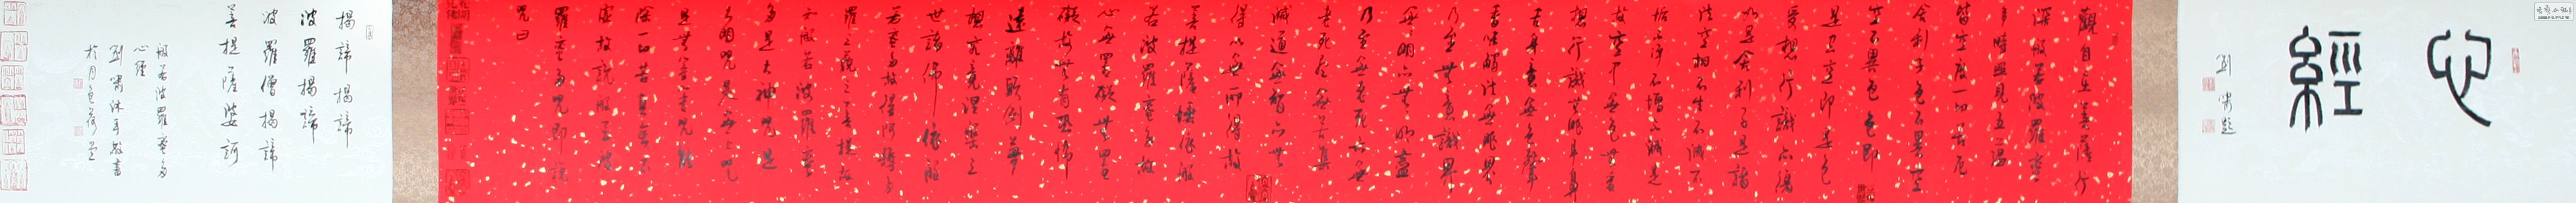 心經
劉 題
觀自在菩薩行
深般若波羅蜜
多時照見五蘊
皆空度一切苦厄
舍利子色不異空
空不異色色即
是空空即是色
受想行識亦復
如是舍利子是諸
法空相不生不滅不
垢不淨不增不減是
故空中無色無受
想行識無眼耳鼻
舌身意無色聲
香味觸法無眼界
乃至無意識界
無無明亦無無明盡
乃至無老死亦無
老死盡無苦集
滅道無智亦無
得以無所得故
菩提薩埵依般
若波羅蜜多故
心無罣礙無罣
礙故無有恐怖
遠離顛倒夢
想究竟涅槃三
世諸佛依般
若波羅蜜多故得阿耨多
羅三藐三菩提故
知般若波羅蜜
多是大神咒是
大明咒是無上咒
是無等等咒能
除一切苦真實不
虛故說般若波
羅蜜多咒即說
咒曰
揭諦揭諦
波羅揭諦
波羅僧揭諦
菩提薩婆訶
般若波羅蜜多
心經
劉 沐手敬書
於月色荷